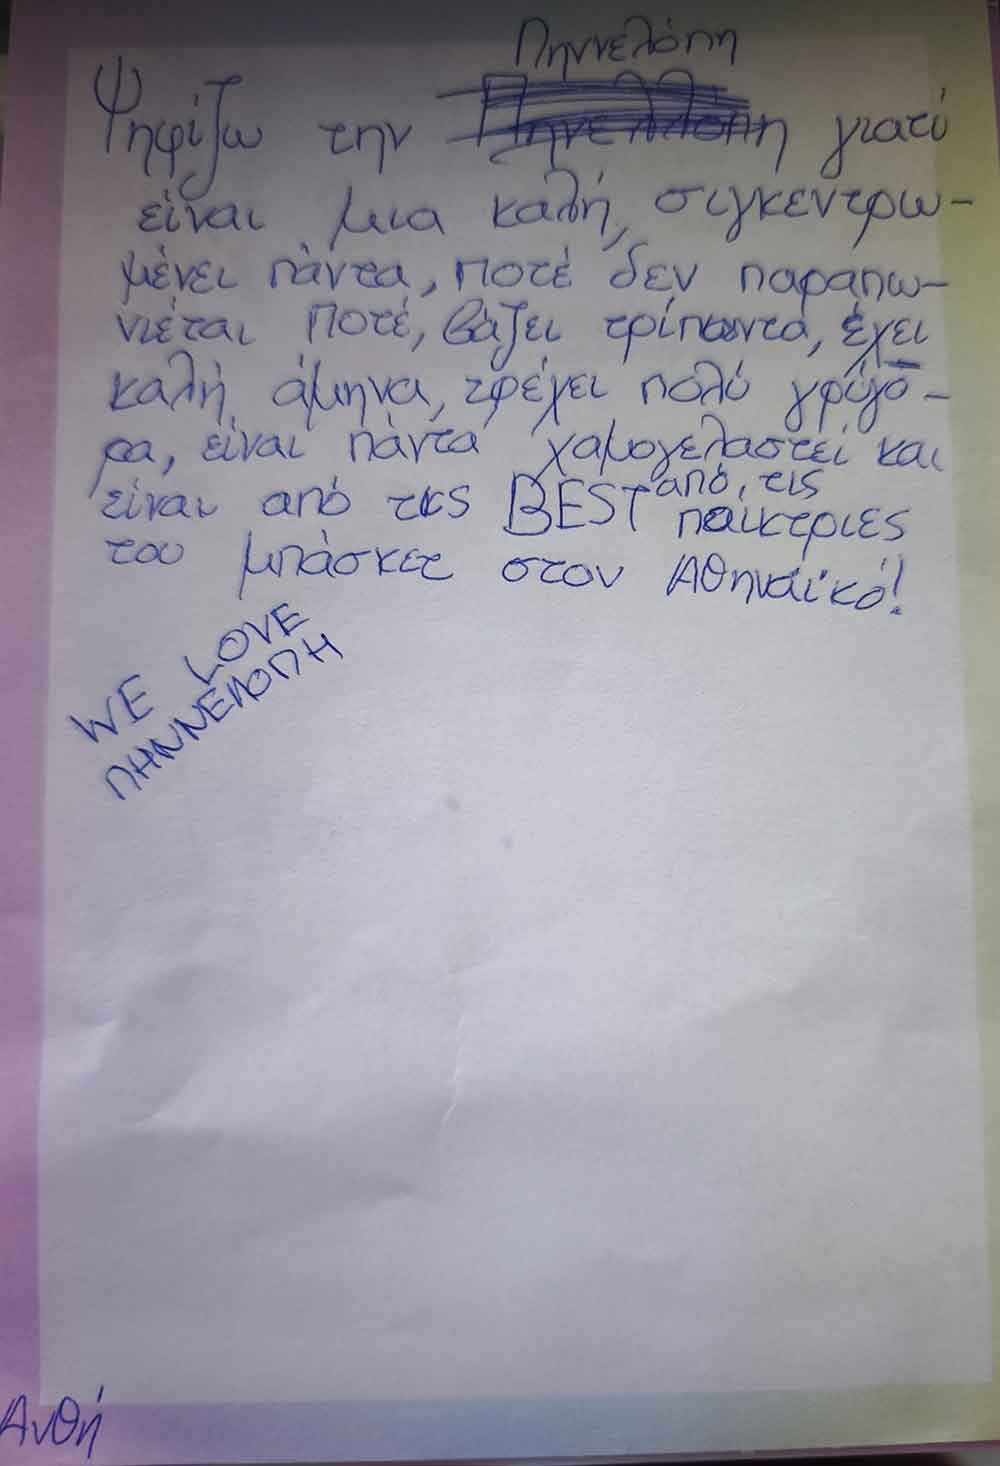 Πηννελόπη
Ψηφίζω την Πηνελλόπη γιατί
είναι μια καλή, σιγκεντρω-
μένει πάντα, ποτέ δεν παραπω-
νιέται ποτέ, βάζει τρίποντα, έχει
καλή άμηνα, τρέχει πολύ γρύγο-
ρα, είναι πάντα χαμογελαστεί και
είναι από τις BEST από, τις παικτριες
του μπάσκετ στον Αθηναϊκό!
WE LOVE
ΠΗΝΝΕΛΟΠΗ
Ανθή